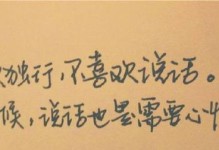 独行，不喜欢说话。
候，说话也是需要心